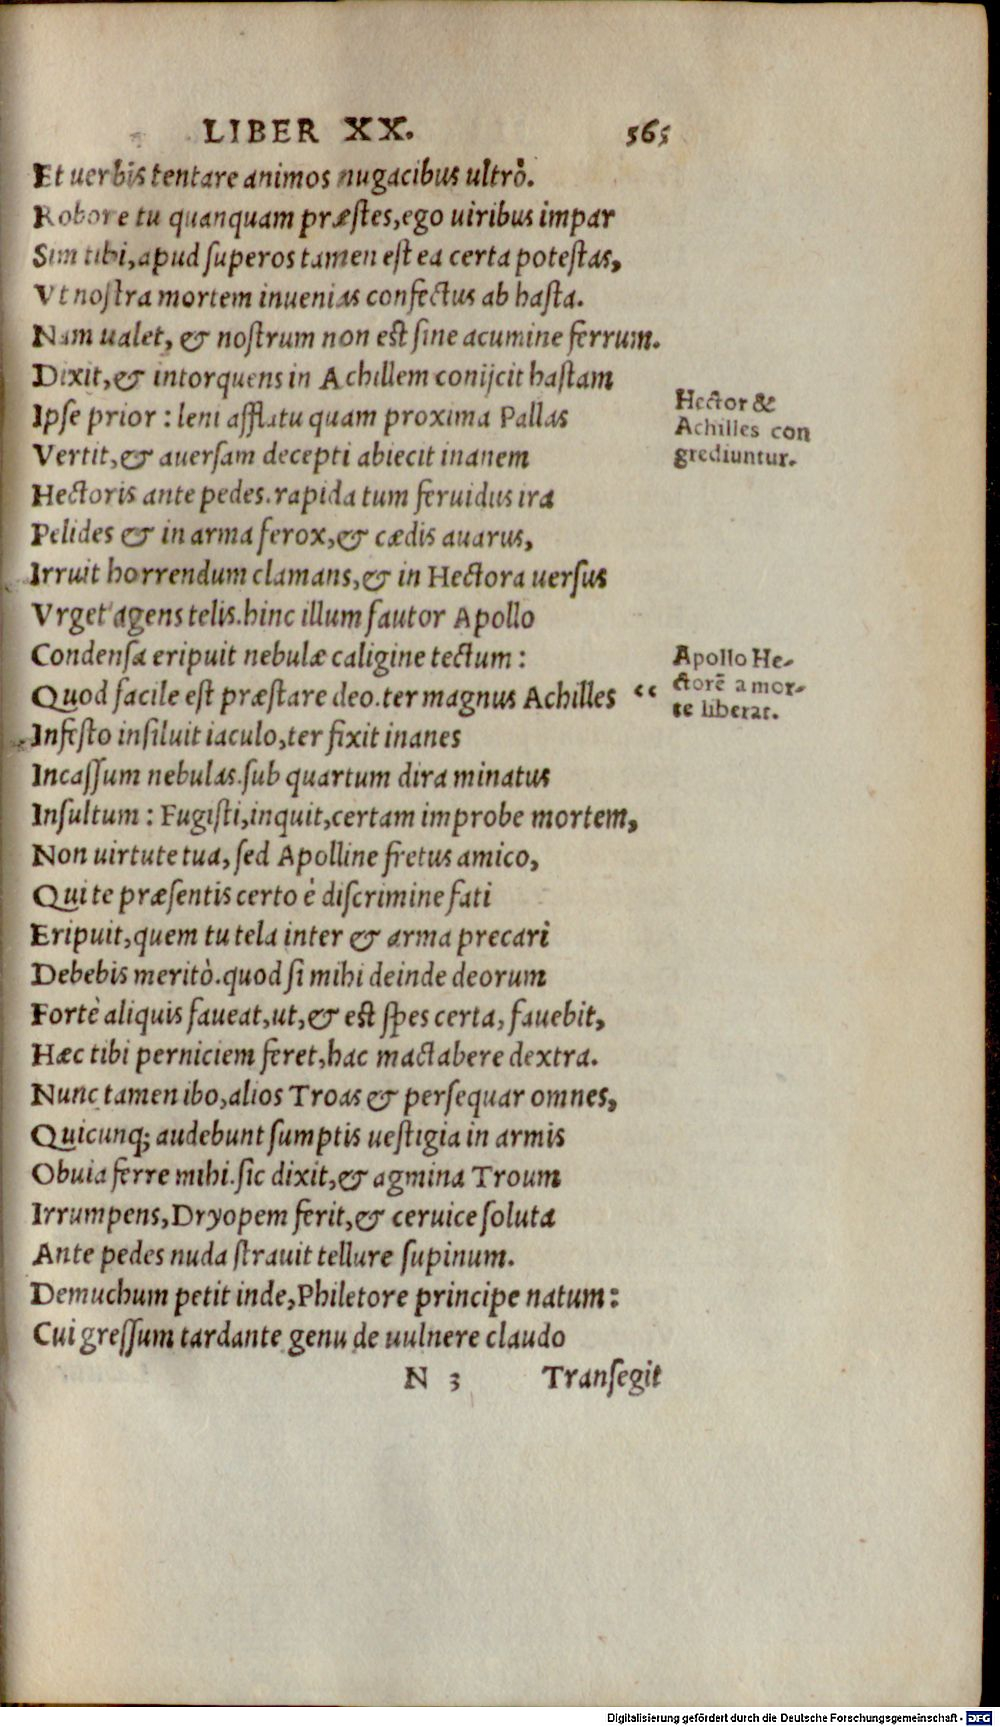 LIBER XX. 565
Et uerbis tentare animos nugacibus ultrò.
Robore tu quanquam præstes, ego uiribus impar
Sim tibi, apud superos tamen est ea certa potestas,
Vt nostra mortem inuenias confectus ab hasta.
Nam ualet, & nostrum non est sine acumine ferrum.
Dixit, & intorquens in Achillem conijcit hastam
Ipse prior: leni afflatu quam proxima Pallas
Hector &
Achilles con
grediuntur.
Vertit, & auersam decepti abiecit inanem
Hectoris ante pedes. rapida tum feruidus ira
Pelides & in arma ferox, & cædis auarus,
Irruit horrendum clamans, & in Hectora uersus
Vrget agens telis. hinc illum fautor Apollo
Condensa eripuit nebulæ caligine tectum:
Apollo He-
ctorē a mor-
te liberat.
Quod facile est præstare deo. ter magnus Achilles “
Infesto insiluit iaculo, ter fixit inanes
Incassum nebulas. sub quartum dira minatus
Insultum: Fugisti, inquit, certam improbe mortem,
Non uirtute tua, sed Apolline fretus amico,
Qui te præsentis certo è discrimine fati
Eripuit, quem tu tela inter & arma precari
Debebis meritò. quod si mihi deinde deorum
Fortè aliquis faueat, ut, & est spes certa, fauebit,
Hæc tibi perniciem feret, hac mactabere dextra.
Nunc tamen ibo, alios Troas & persequar omnes,
Quicunq; audebunt sumptis uestigia in armis
Obuia ferre mihi. sic dixit, & agmina Troum
Irrumpens, Dryopem ferit, & ceruice soluta
Ante pedes nuda strauit tellure supinum.
Demuchum petit inde, Philetore principe natum:
Cui gressum tardante genu de uulnere claudo
N 3 Transegit
Digitalisierung gefördert durch die Deutsche Forschungsgemeinschaft - DFG